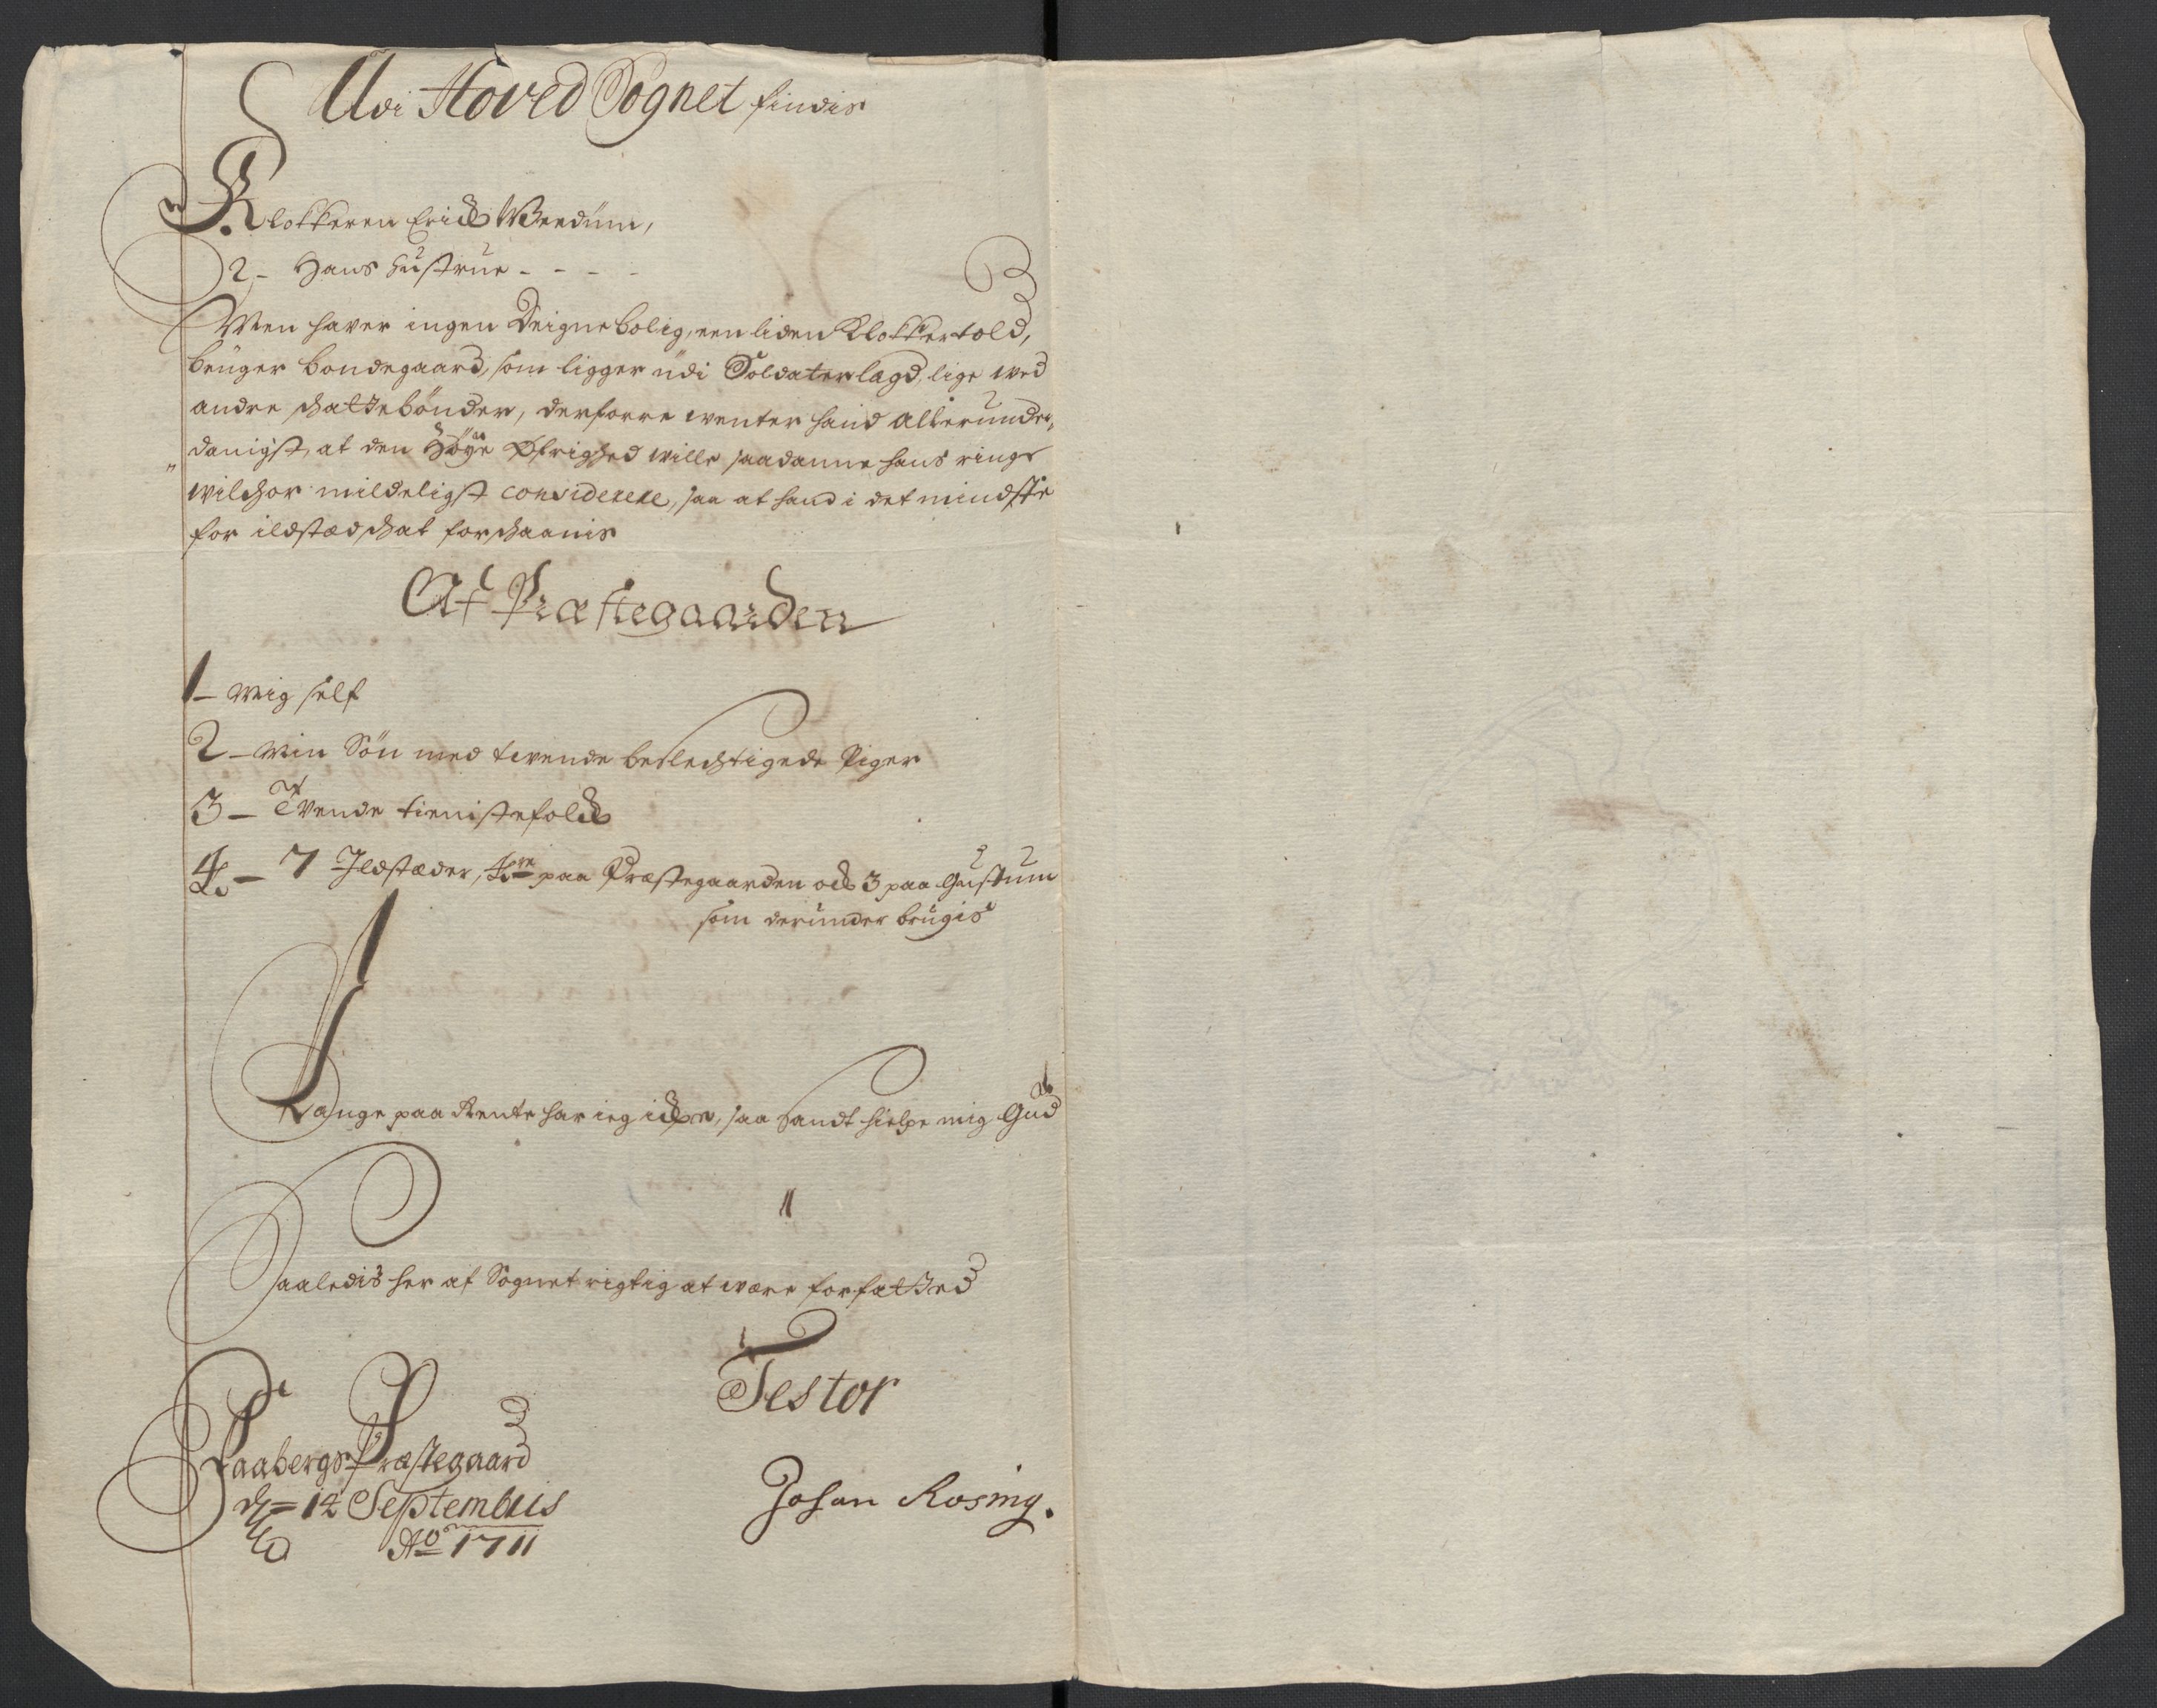 Udi Hoved Sognet findis
Klokkeren Erick Weedum,
2 - Hans hustrue - - - -
Men haver ingen Deignebolig, een liden Klokkertold,
bruger bondegaard, som ligger udi Soldaterlagd, lige ved
andre schattebønder, derforre venter hand allerunder,
„ danigst, at den Høye Øfrighed wille saadanne hans ringe
wilchor mildeligst considerere, saa at hand i det mindste
for ildstædschat forschaanis
Af Præstegaarden
1 - Mig self
2 - Min Søn med tvende beslechtigede Piger
3 - Tvende tienistefolck
4 - 7 Ildstæder, 4re paa Præstegaarden och 3 paa Gustum
som derunder brugis
Pænge paa Rente har ieg icke, saa Sandt hielpe mig Gud
Saaledis her af Sognet rigtig at være forfatted
Testor
Faabergs Præstegaard
d = 12 Septembris
Ao 1711
Johan Rosing.